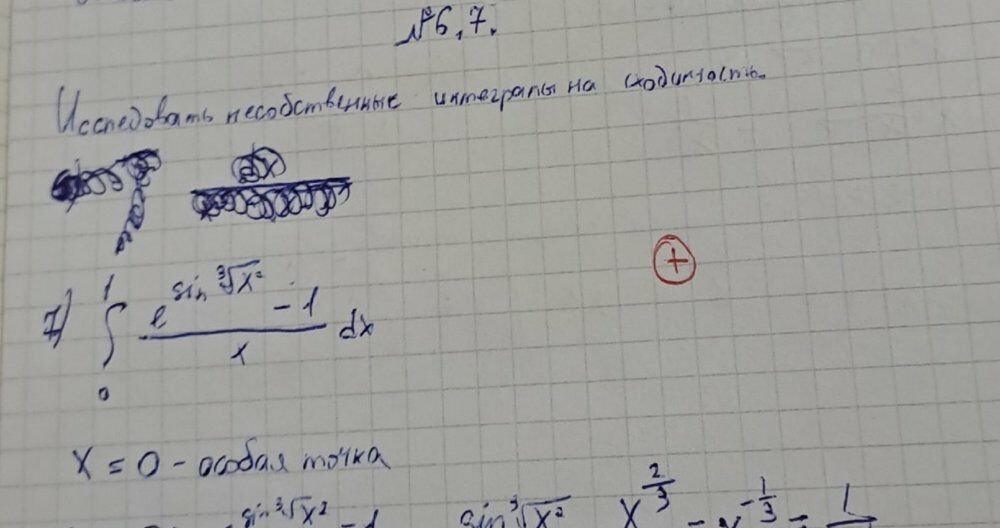 №6,7.
Исследовать несобственные интегралы на сходимость.
7) ∫₀¹ (e^(sin ∛x²) - 1)/x dx
+
x = 0 - особая точка
sin ∛x² - 1 sin ∛x² x^(2/3) = x^(-1/3) = 1